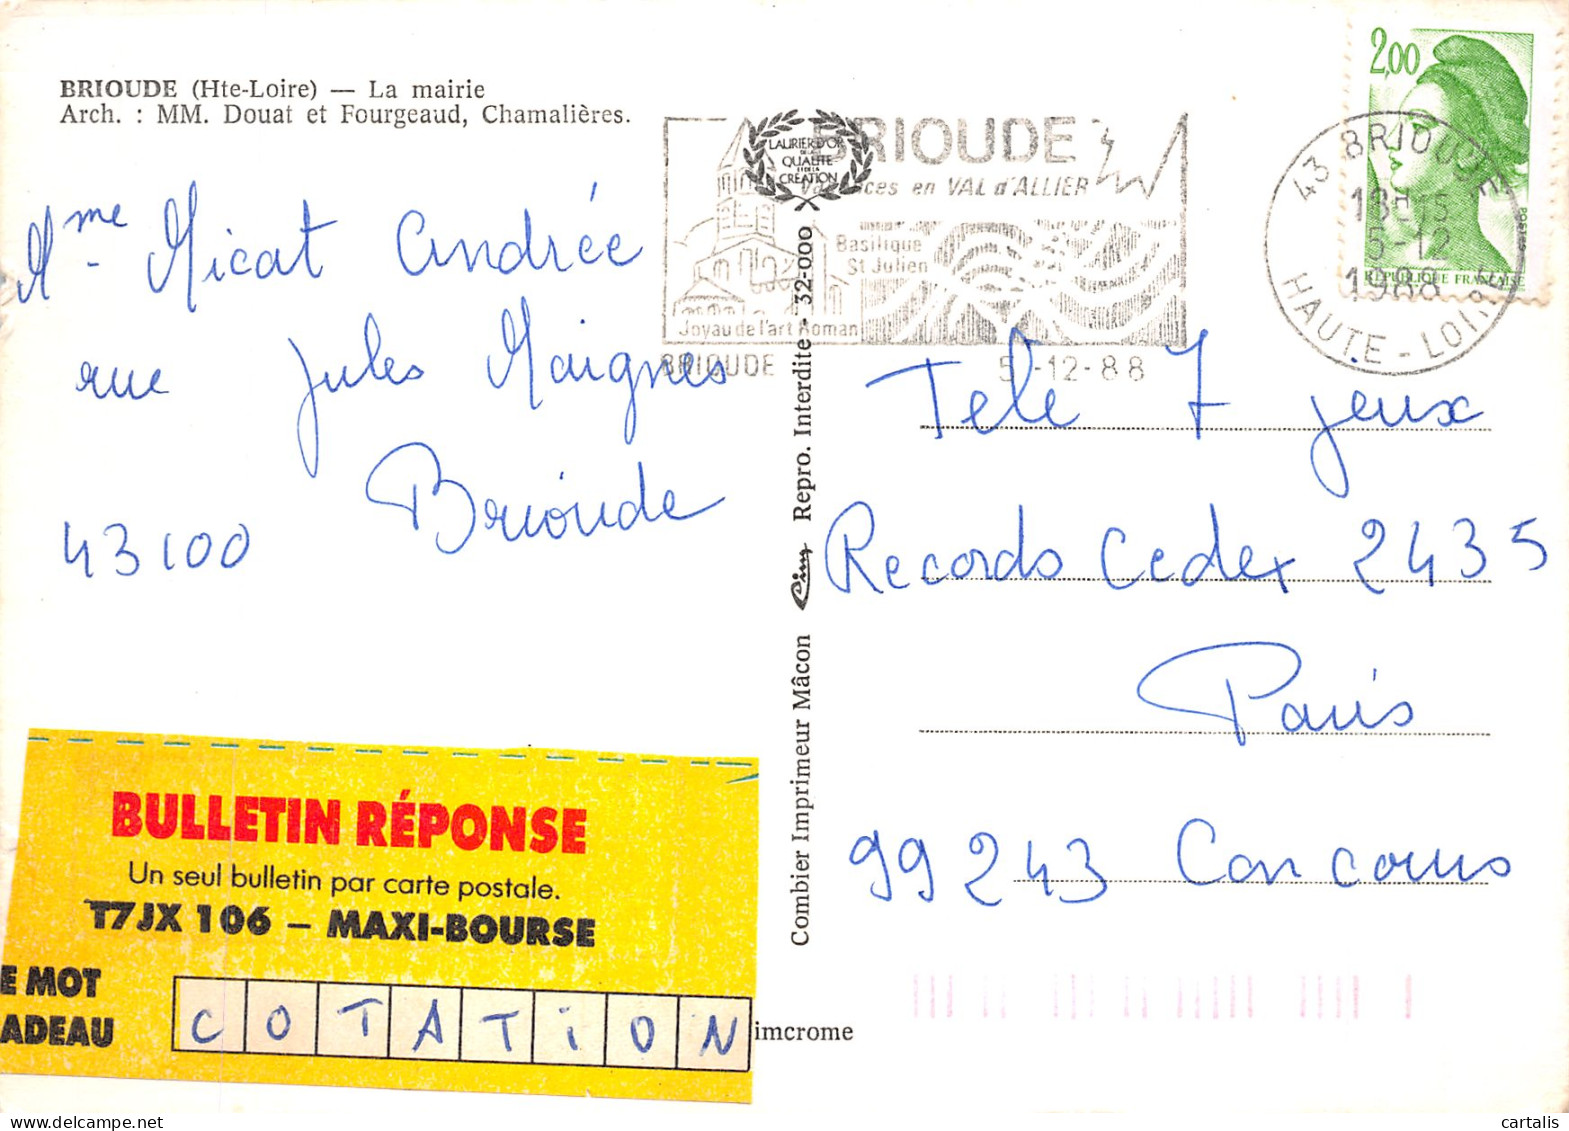 BRIOUDE (Hte-Loire) — La mairie
Arch. : MM. Douat et Fourgeaud, Chamalières.
Mme Micat Andrée
rue Jules Maignes
Brioude
43100
BULLETIN RÉPONSE
Un seul bulletin par carte postale.
T7JX 106 – MAXI-BOURSE
E MOT
ADEAU
COTATiON
imcrome
Combier Imprimeur Mâcon Cim Repro. Interdite - 32-000
LAURIER D'OR
DE LA
QUALITÉ
ET DE LA
CRÉATION
BRIOUDE
en VAL d'ALLIER
Basilique
St Julien
Joyau de l'art Roman
BRIOUDE 5-12-88
2,00
POSTES
REPUBLIQUE FRANÇAISE
43 BRIOUDE
5-12
1988
HAUTE-LOIRE
Tele 7 jeux
Records Cedex 2435
Paris
99243 Concours
cartalis
delcampe.net